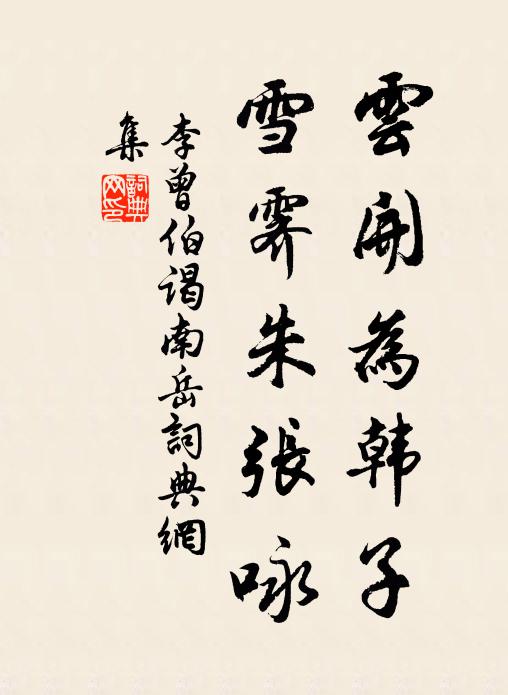 雲開為韩子
雪霽朱張咏
李曾伯謁南岳詞典網
集
詞典
网印